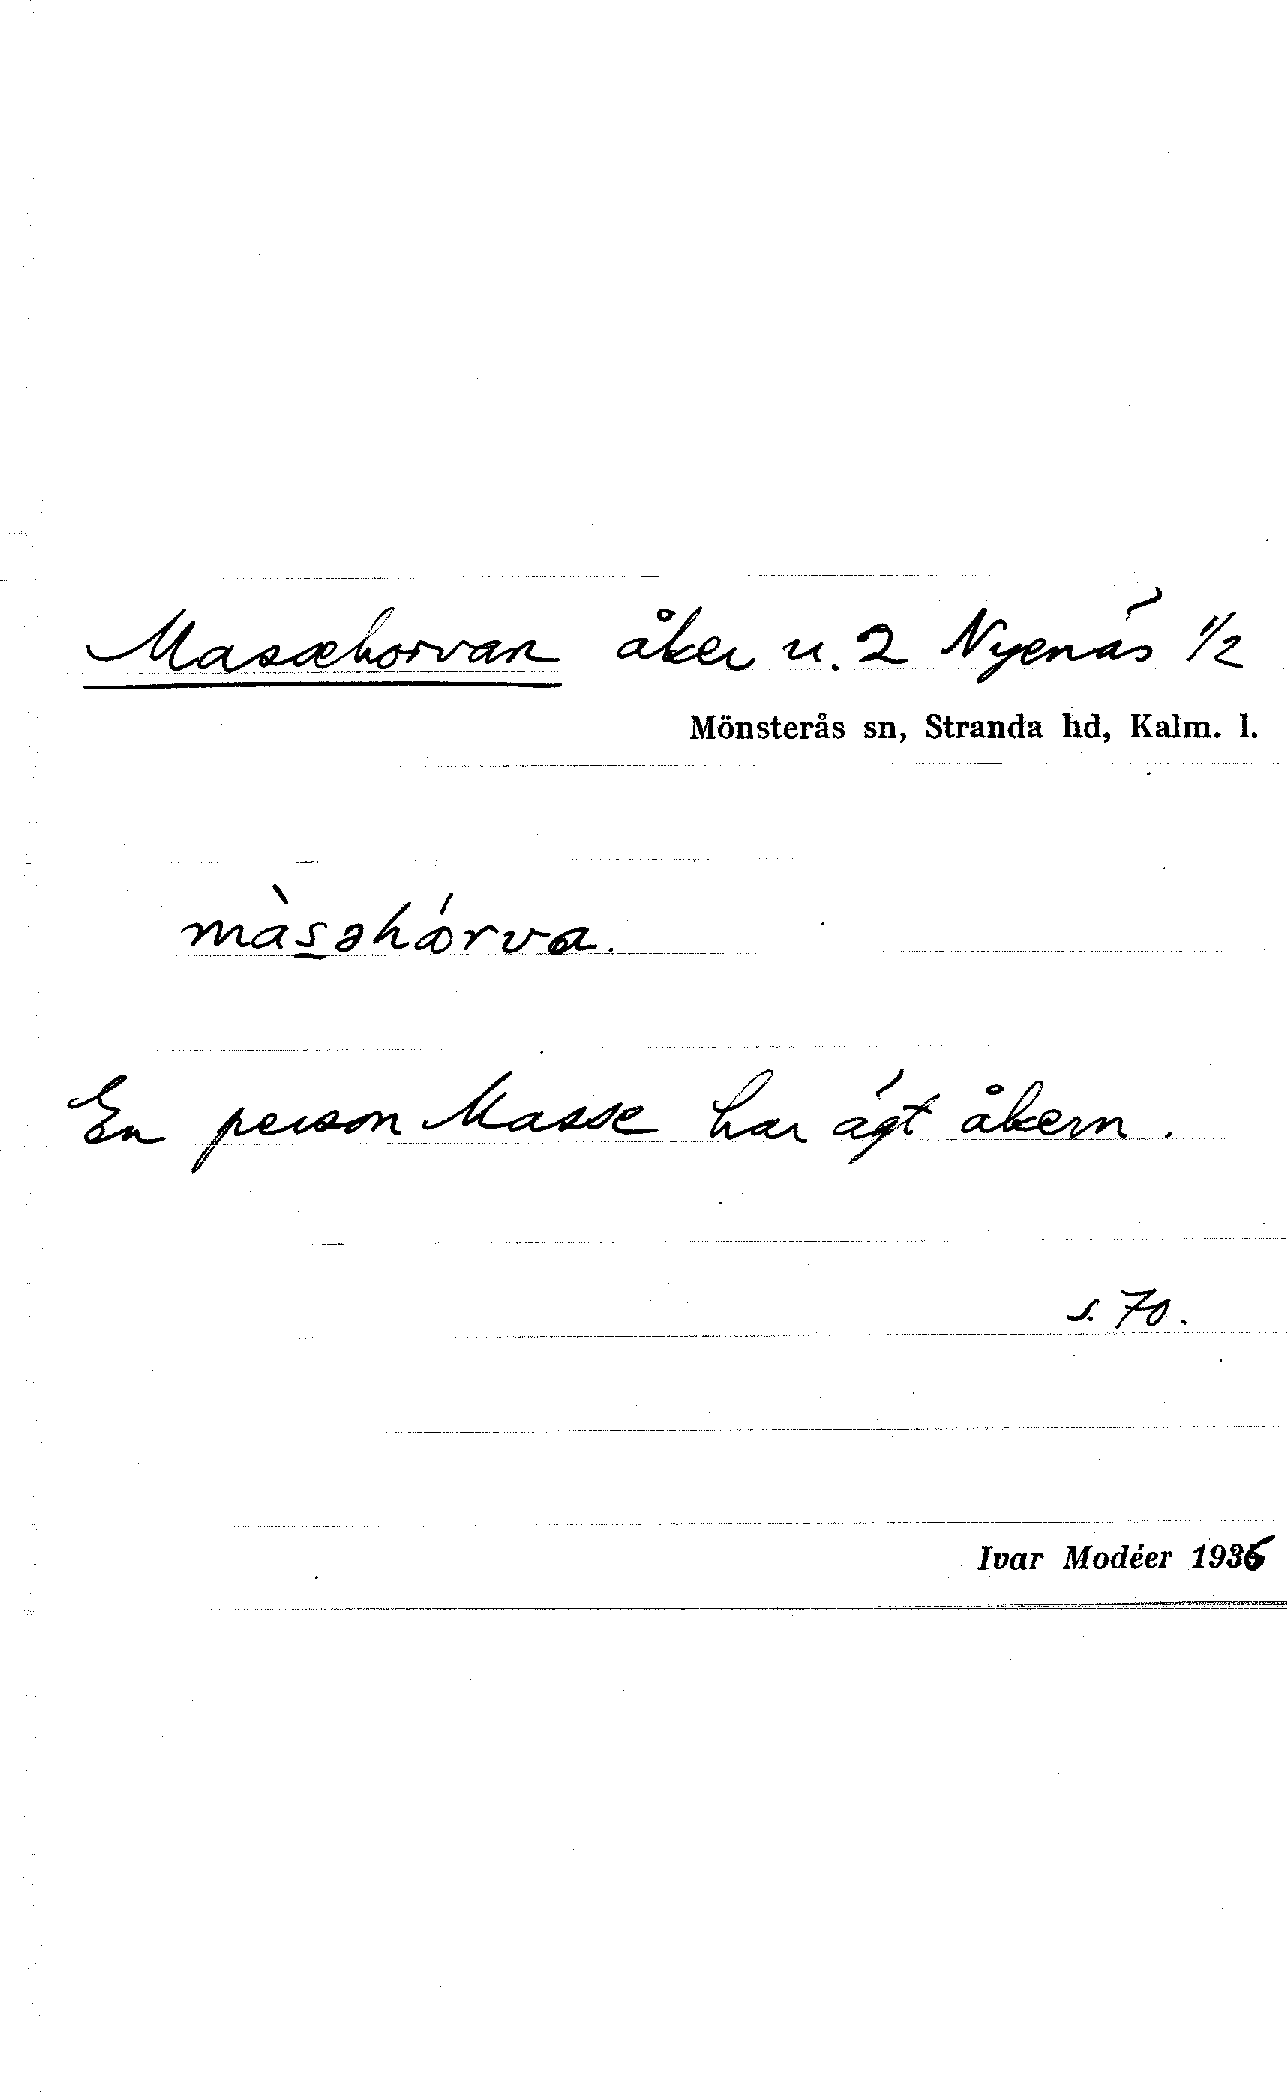 Massehorvan åker u. 2 Nyenäs 1/2
Mönsterås sn, Stranda hd, Kalm. l.
màsəhórva.
En person Masse har ägt åkern.
s. 70.
Ivar Modéer 1936